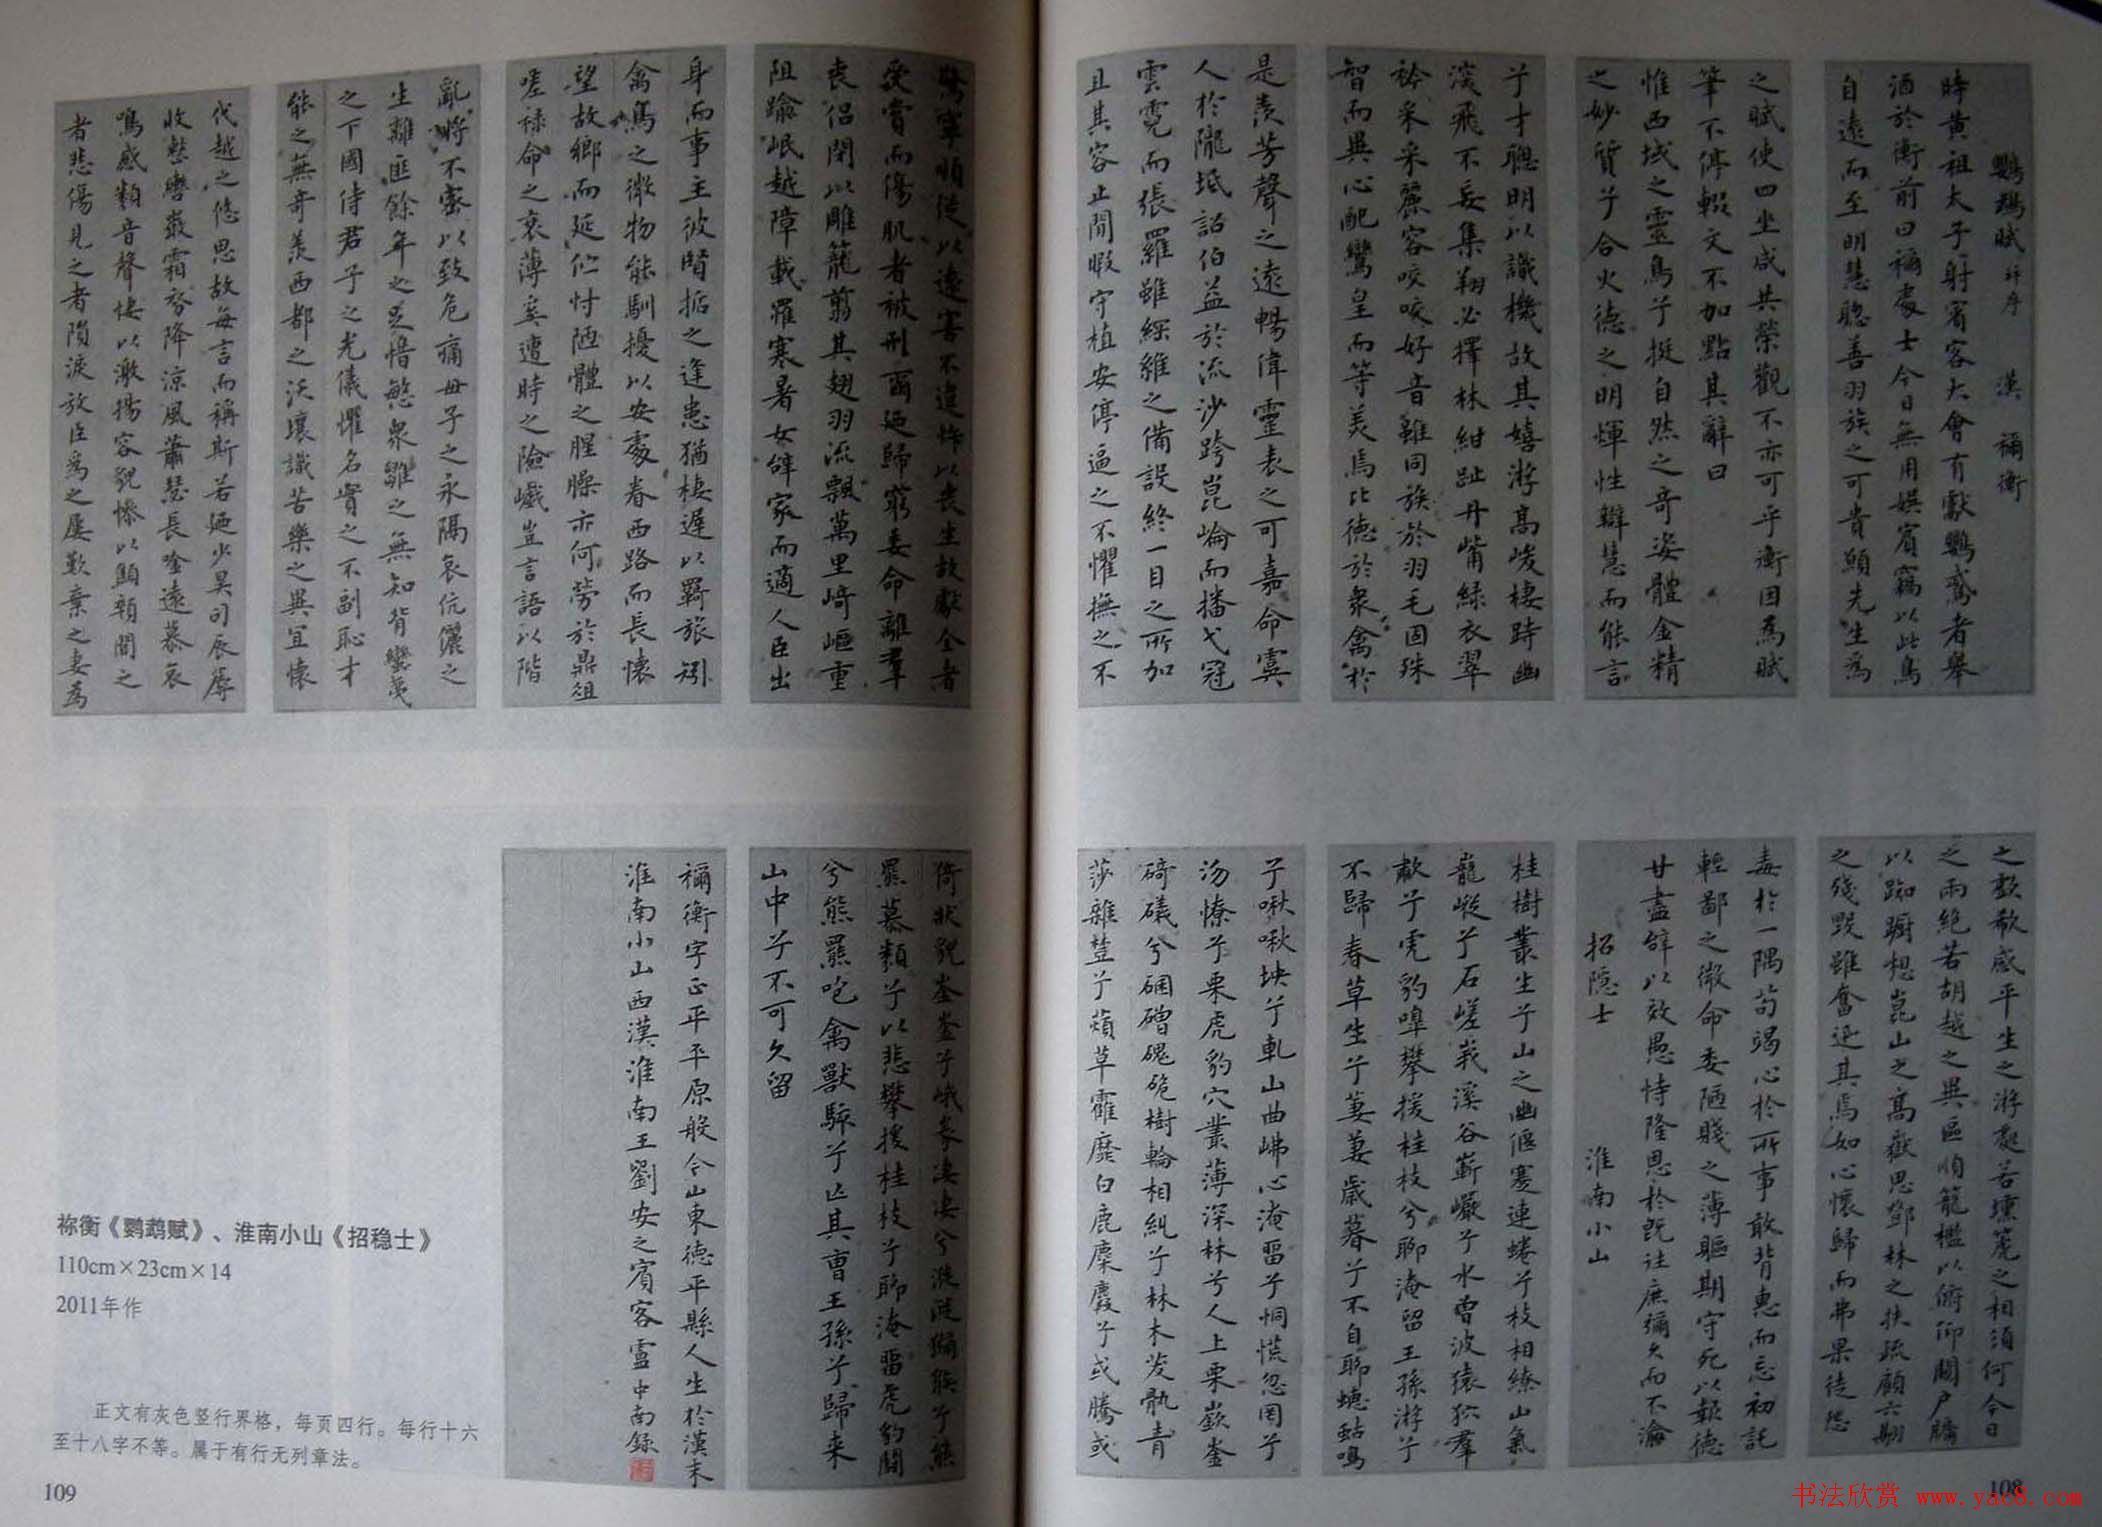 鸚鵡賦 并序 漢 禰衡
時黃祖太子射賓客大會有獻鸚鵡者舉
酒於衡前曰禰處士今日無用娛賓竊以此鳥
自遠而至明慧聰善羽族之可貴願先生為
之賦使四坐咸共榮觀不亦可乎衡因為賦
筆不停輟文不加點其辭曰
惟西域之靈鳥兮挺自然之奇姿體金精
之妙質兮合火德之明煇性辯慧而能言
兮才聰明以識機故其嬉游高峻棲跱幽
深飛不妄集翔必擇林紺趾丹觜綠衣翠
衿采采麗容咬咬好音雖同族於羽毛固殊
智而異心配鸞皇而等美焉比德於衆禽於
是羨芳聲之遠暢偉靈表之可嘉命虞
人於隴坻詔伯益於流沙跨崑崙而播弋冠
雲霓而張羅雖綱維之備設終一目之所加
且其容止閒暇守植安停逼之不懼撫之不
驚寧順從以遠害不違忤以喪生故獻全者
受賞而傷肌者被刑爾廼歸窮委命離羣
喪侶閉以雕籠翦其翅羽流飄萬里崎嶇重
阻踰岷越障載罹寒暑女辭家而適人臣出
身而事主彼賢哲之逢患猶棲遲以羇旅矧
禽鳥之微物能馴擾以安處眷西路而長懷
望故鄉而延佇忖陋體之腥臊亦何勞於鼎俎
嗟祿命之衰薄奚遭時之險巇豈言語以階
亂將不密以致危痛母子之永隔哀伉儷之
生離匪餘年之足惜慜衆雛之無知背蠻夷
之下國侍君子之光儀懼名實之不副恥才
能之無奇羨西都之沃壤識苦樂之異宜懷
代越之悠思故每言而稱斯若廼少昊司辰蓐
收整轡嚴霜初降涼風蕭瑟長唫遠慕哀
鳴感類音聲悽以激揚容貌慘以顦顇聞之
者悲傷見之者隕淚放臣為之屢歎棄之妻為
之歔欷感平生之游處若壎篪之相須何今日
之兩絕若胡越之異區順籠檻以俯仰闚戶牖
以踟躕想崑山之高嶽思鄧林之扶疏顧六翮
之殘毀雖奮迅其焉如心懷歸而弗果徒怨
毒於一隅苟竭心於所事敢背惠而忘初託
輕鄙之微命委陋賤之薄軀期守死以報德
甘盡辭以效愚恃隆恩於既往庶彌久而不渝
招隱士 淮南小山
桂樹叢生兮山之幽偃蹇連蜷兮枝相繚山氣
巃嵷兮石嵯峩溪谷嶄巖兮水曾波猿狖羣
嘯兮虎豹嘷攀援桂枝兮聊淹留王孫游兮
不歸春草生兮萋萋歲暮兮不自聊蟪蛄鳴
兮啾啾坱兮軋山曲岪心淹留兮恫慌忽罔兮
沕憭兮栗虎豹穴叢薄深林兮人上栗嶔崟
碕礒兮碅磳磈硊樹輪相糾兮林木茇骫青
莎雜樹兮薠草靃靡白鹿麏麚兮或騰或
倚狀貌崟崟兮峨峨淒淒兮漇漇獼猴兮熊
羆慕類兮以悲攀援桂枝兮聊淹留虎豹鬬
兮熊羆咆禽獸駭兮亡其曹王孫兮歸来
山中兮不可久留
禰衡字正平平原般今山東德平縣人生於漢末
淮南小山西漢淮南王劉安之賓客雲中南錄
祢衡《鹦鹉赋》、淮南小山《招稳士》
110cm×23cm×14
2011年作
正文有灰色竖行界格，每页四行。每行十六
至十八字不等。属于有行无列章法。
109
108
书法欣赏 www.yac8.com